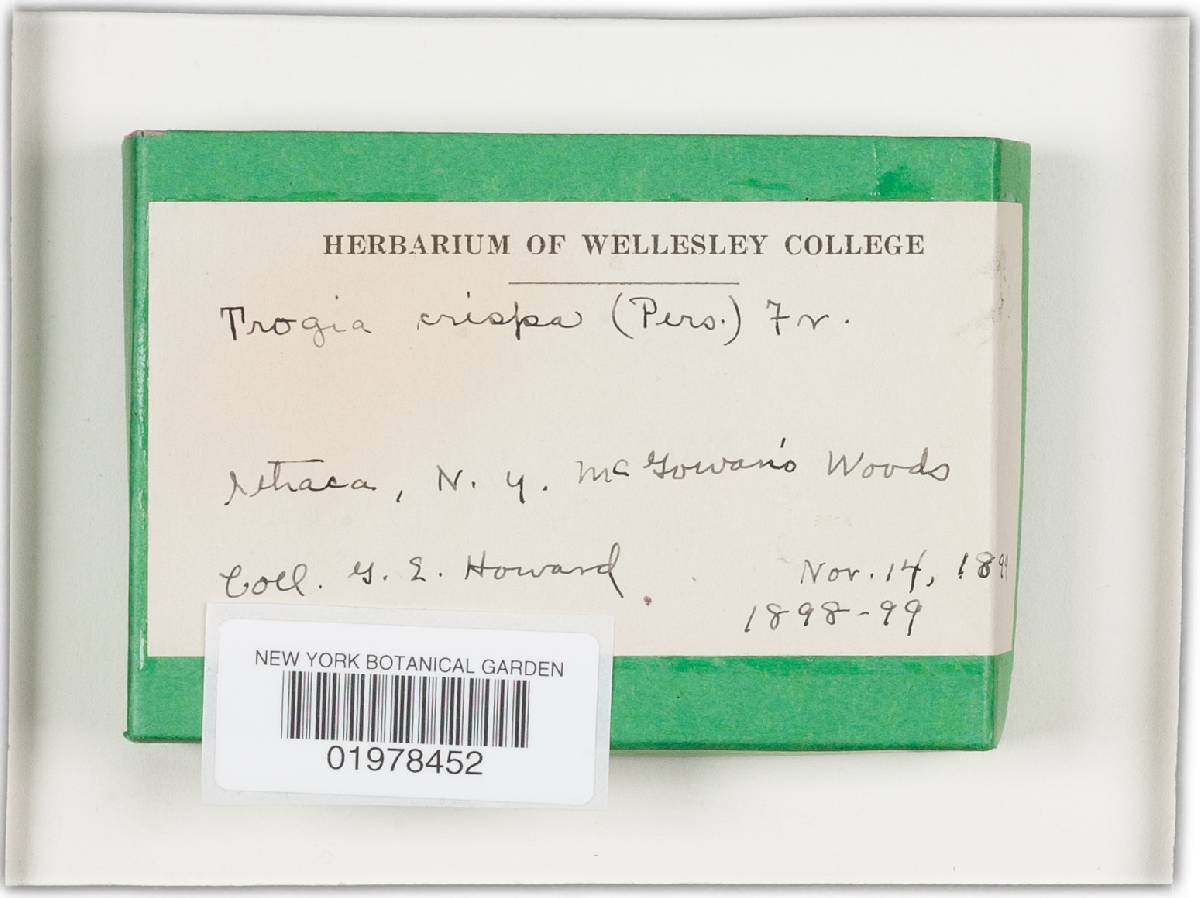 HERBARIUM OF WELLESLEY COLLEGE
Trogia crispa (Pers.) Fr.
Ithaca, N. Y. McGowan's Woods
Coll. G. E. Howard. Nov. 14,
1898-99
NEW YORK BOTANICAL GARDEN
01978452